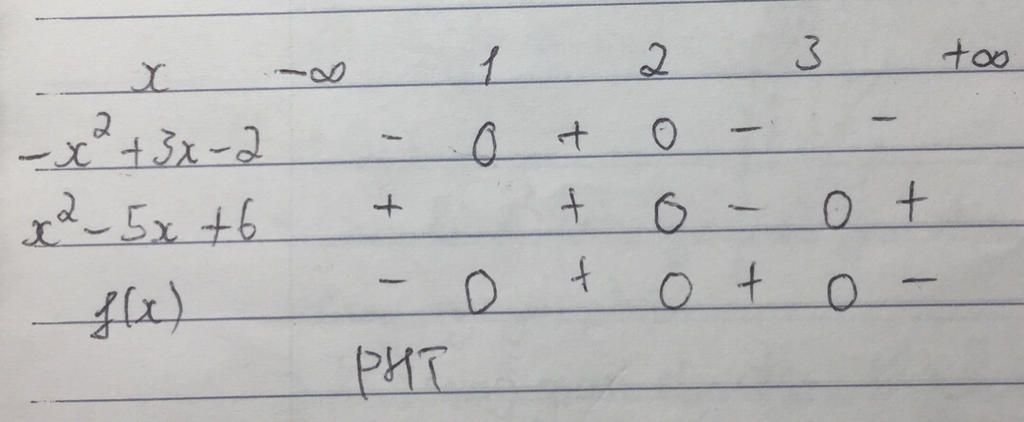 x -∞ 1 2 3 +∞
-x² + 3x - 2 - 0 + 0 - -
x² - 5x + 6 + + 0 - 0 +
f(x) - 0 + 0 + 0 -
PHT